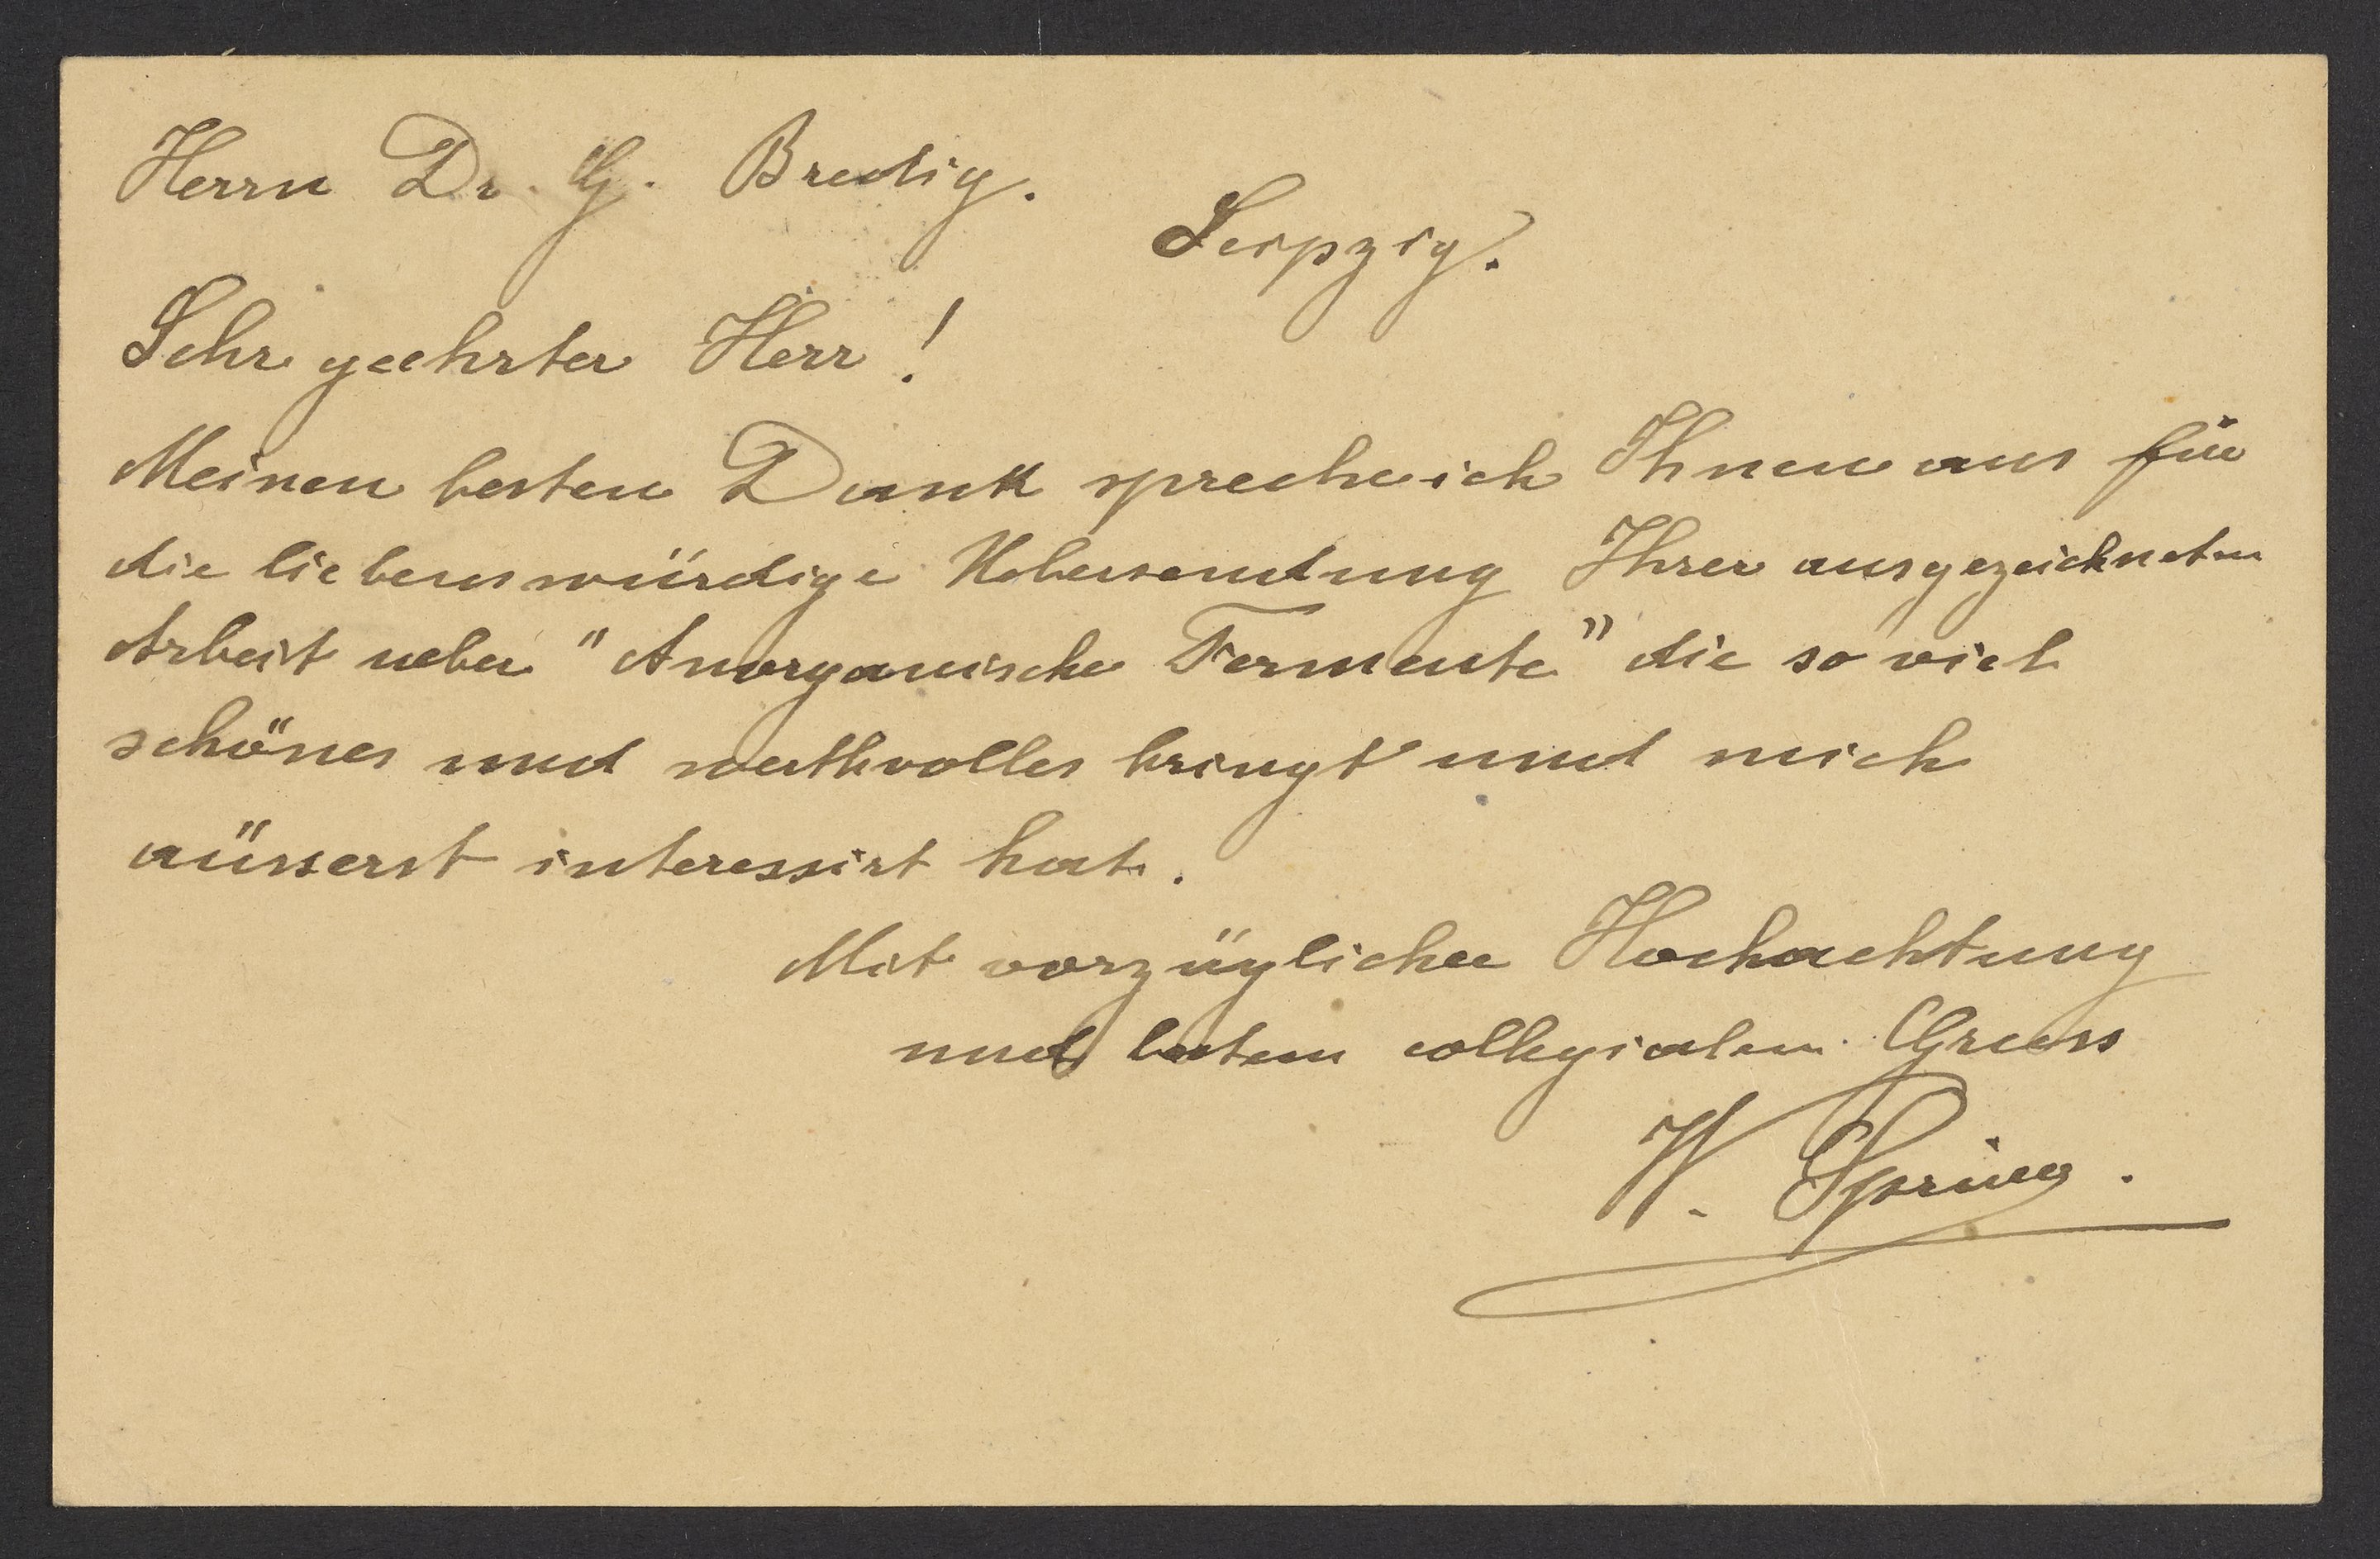 Herrn Dr. G. Bredig.
Leipzig.
Sehr geehrter Herr !
Meinen besten Dank spreche ich Ihnen aus für
die liebenswürdige Uebersendung Ihrer ausgezeichneten
Arbeit ueber "Anorganische Fermente" die so viel
schönes und werthvolles bringt und mich
aüsserst interessirt hat.
Mit vorzüglicher Hochachtung
und bestem collegialem Gruss
W. Spring.